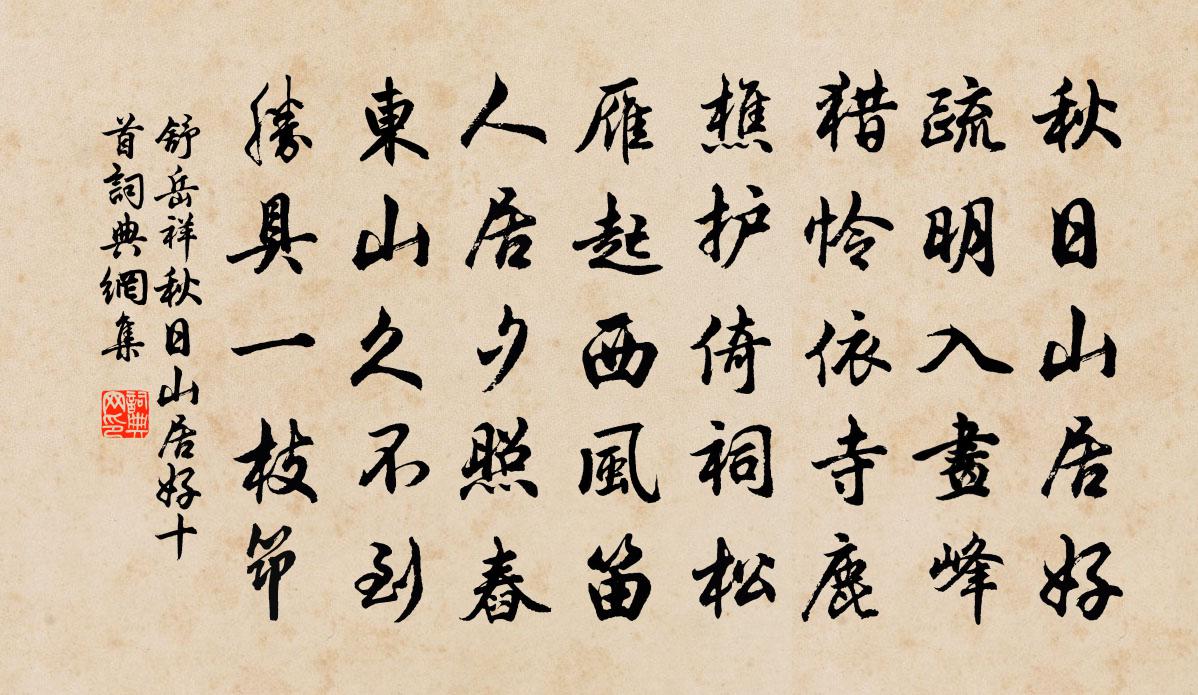 秋日山居好
疏明入畫峰
猎怜依寺鹿
樵护倚祠松
雁起西風笛
人居夕照舂
東山久不到
勝具一枝筇
舒岳祥秋日山居好十
首詞典網集
詞典
网印